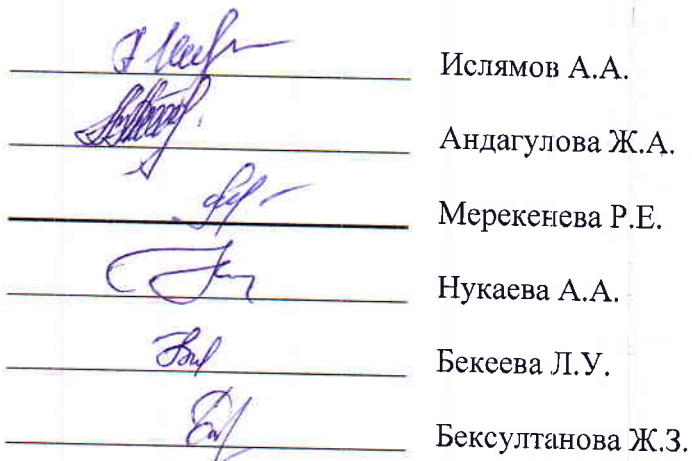 Ислямов А.А.
Андагулова Ж.А.
Мерекенева Р.Е.
Нукаева А.А.
Бекеева Л.У.
Бексултанова Ж.З.